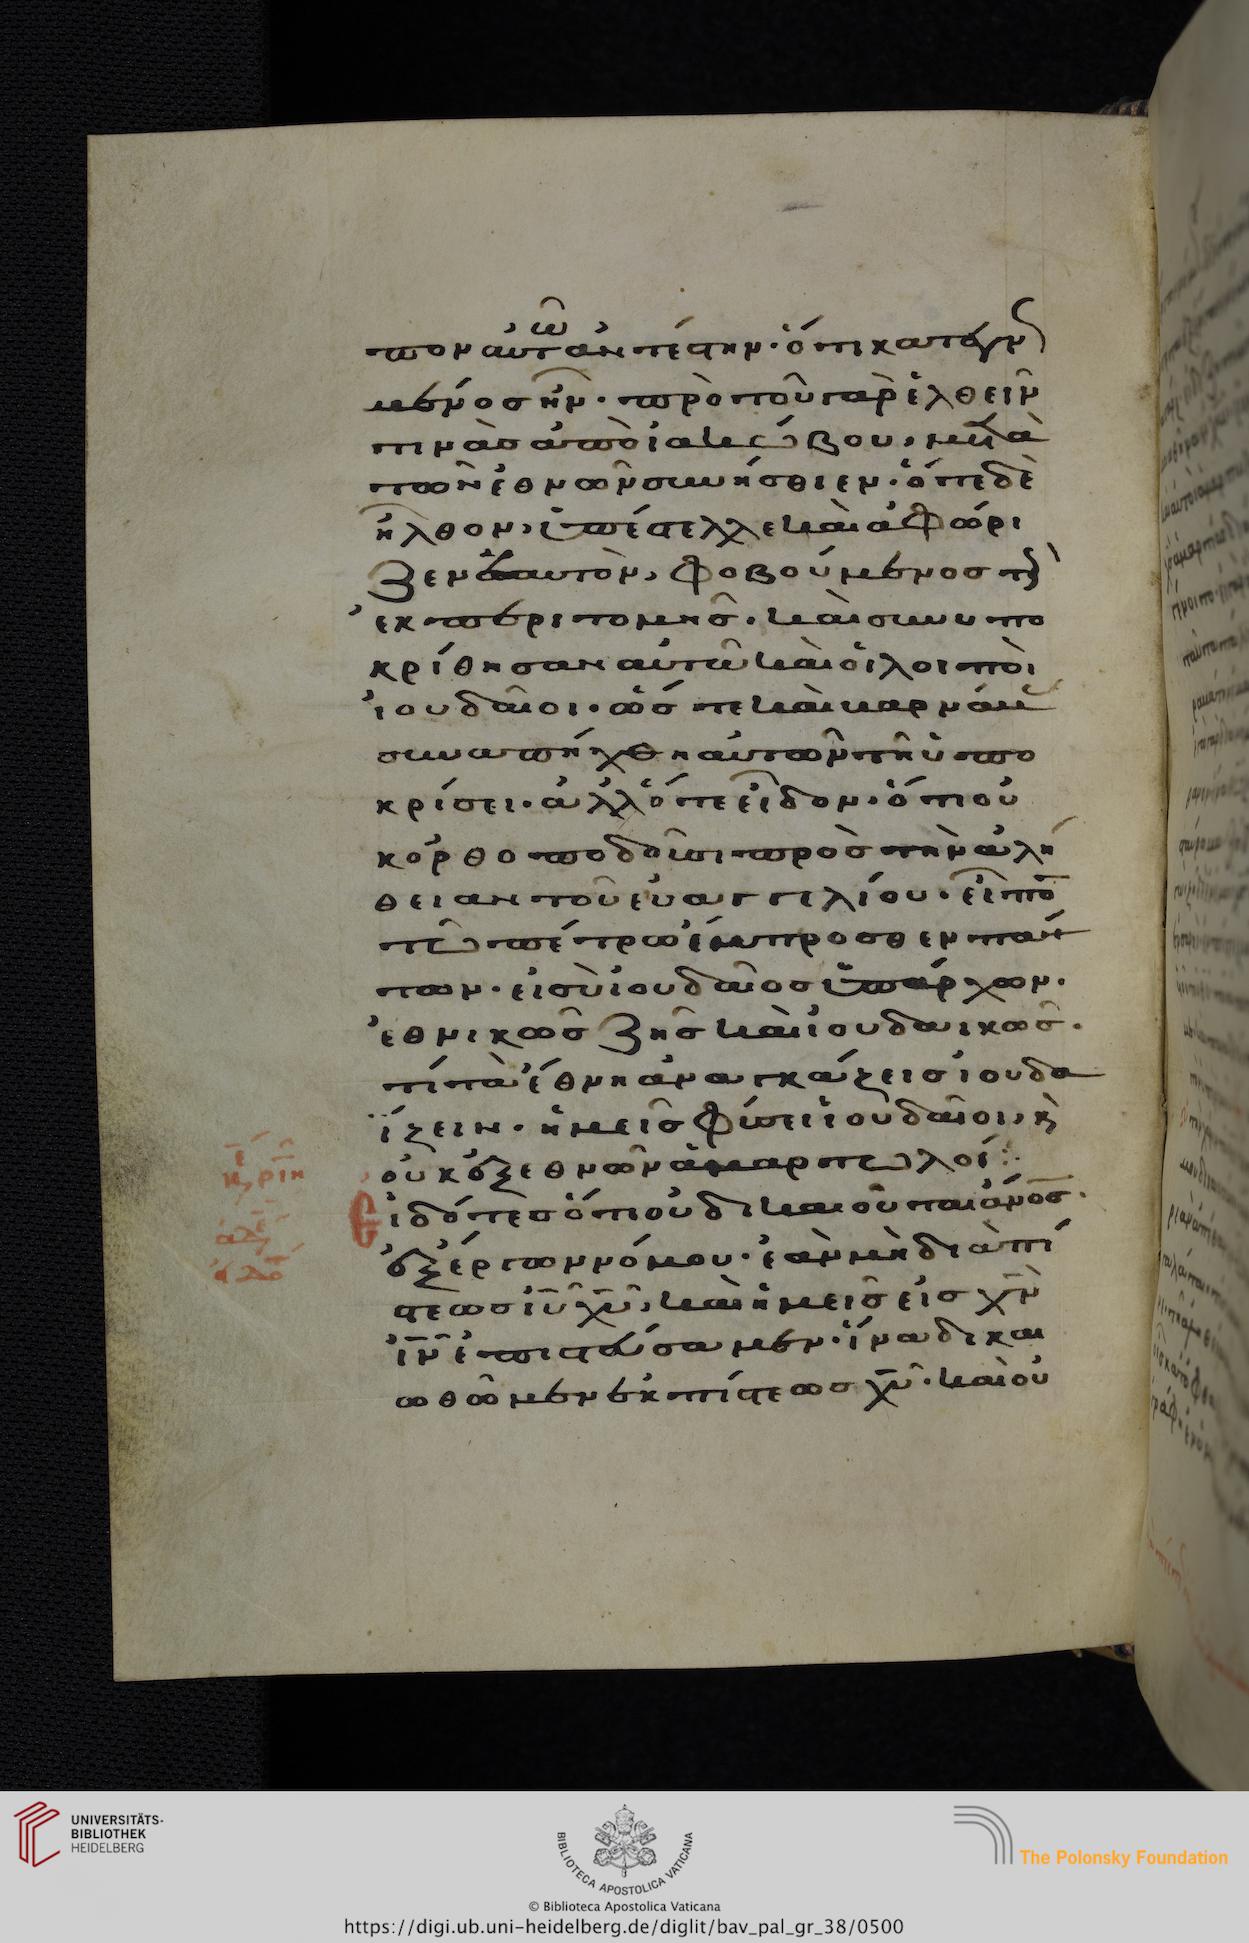 πον αὐτῶ ἀντέστην· ὅτι κατεγνω
μένος ἦν· πρὸ τοῦ γὰρ ἐλθεῖν
τινὰς ἀπὸ ἰακώβου, μετὰ
τῶν ἐθνῶν συνήσθιεν· ὅτε δὲ
ἦλθον, ὑπέστελλε καὶ ἀφώρι
ζεν ἑαυτὸν, φοβούμενος τοὺς
ἐκ περιτομῆς· καὶ συνυπε
κρίθησαν αὐτῶ καὶ οἱ λοιποὶ
ἰουδαῖοι· ὥστε καὶ βαρνάβας
συναπήχθη αὐτῶν τῆ ὑπο
κρίσει· ἀλλ ὅτε εἶδον· ὅτι οὐ
κ ὀρθοποδοῦσι πρὸς τὴν ἀλή
θειαν τοῦ εὐαγγελίου· εἶπον
τῶ πέτρω ἔμπροσθεν πάν
των· εἰ σὺ ἰουδαῖος ὑπάρχων·
ἐθνικῶς ζῆς καὶ ἰουδαικῶς·
τί τὰ ἔθνη ἀναγκάζεις ἰουδα
ΐζειν· ἡμεῖς φύσει ἰουδαῖοι, κ
οὐκ ἐξ ἐθνῶν ἁμαρτωλοί:
Εἰδότες ὅτι οὐ δικαιοῦται ἄνος·
ἐξ ἔργων νόμου· ἐὰν μὴ διὰ πί
στεως ιυ χυ, καὶ ἡμεῖς εἰς χν
ιν ἐπιστεύσαμεν· ἵνα δικαι
ωθῶμεν ἐκ πίστεως χυ· καὶ οὐ
UNIVERSITÄTS-
BIBLIOTHEK
HEIDELBERG
BIBLIOTECA APOSTOLICA VATICANA
The Polonsky Foundation
© Biblioteca Apostolica Vaticana
https://digi.ub.uni-heidelberg.de/diglit/bav_pal_gr_38/0500